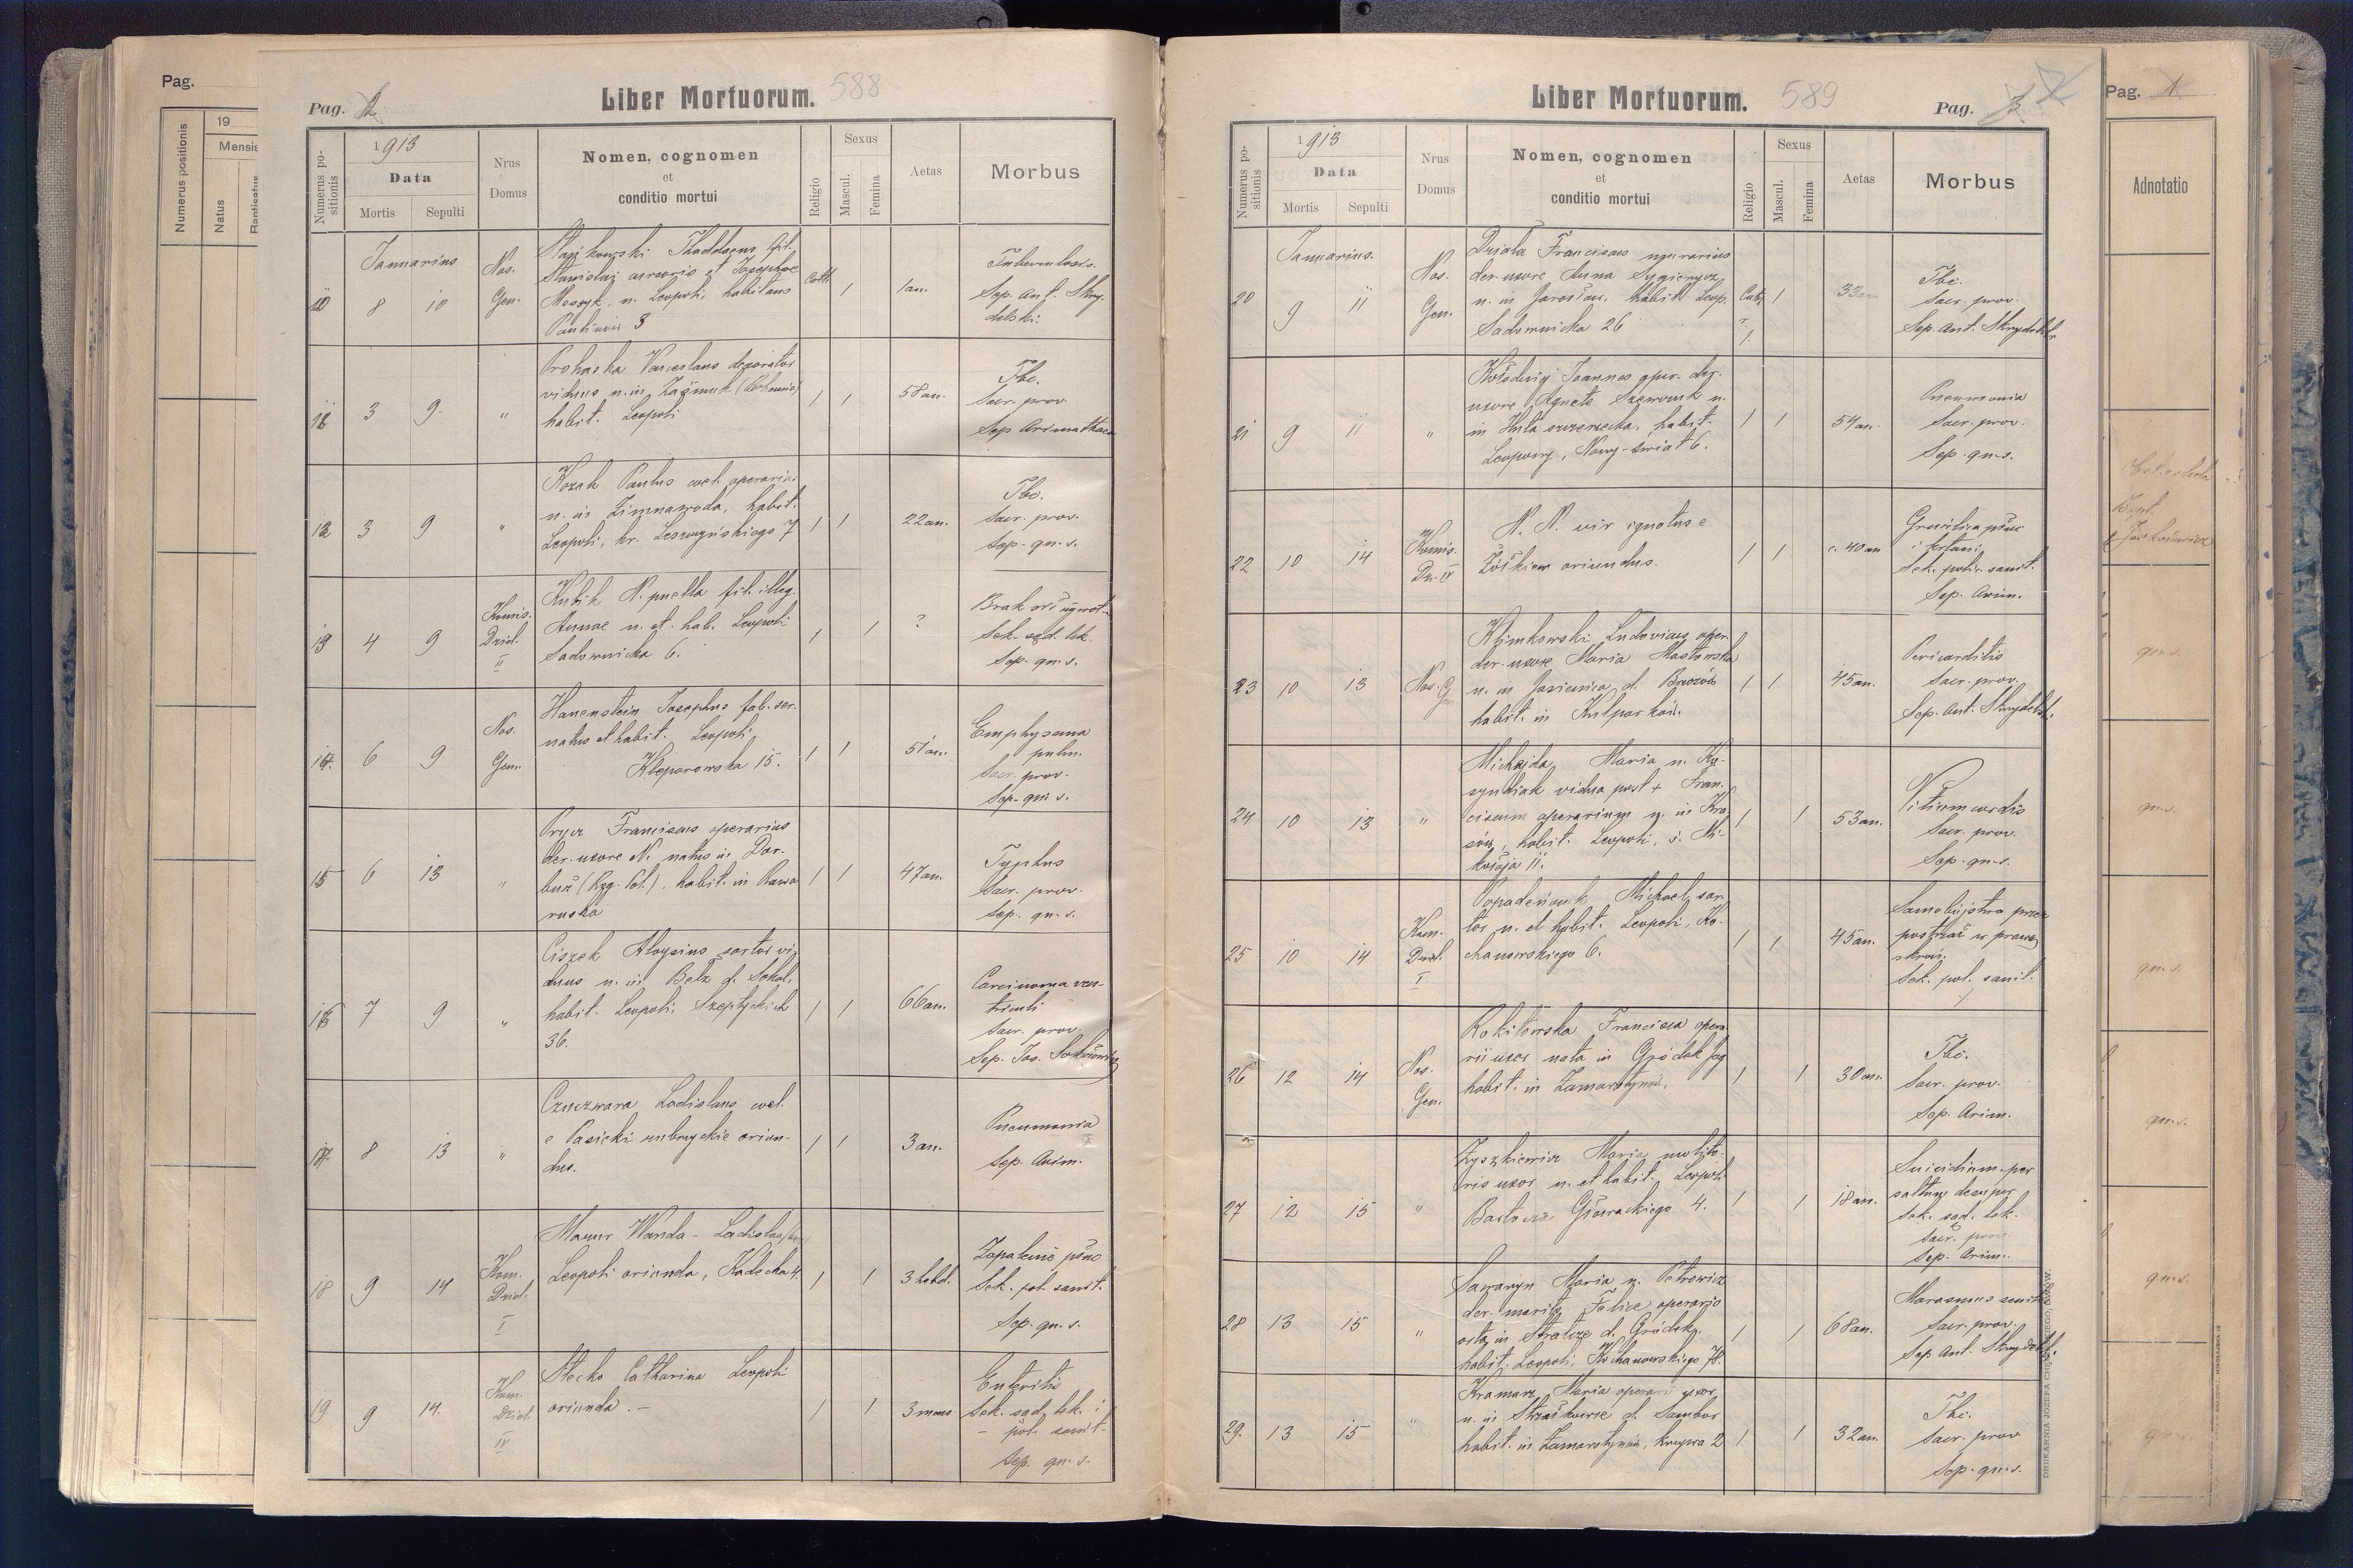 Pag.
Numerus positionis
19
Mensis
Natus
Baptisatus
Pag. 2
Liber Mortuorum. 588
Numerus positionis
1913
Data
Mortis
Sepulti
Nrus Domus
Nomen, cognomen
et
conditio mortui
Religio
Sexus
Mascul.
Femina
Aetas
Morbus
Januarius
10 8 10 Nos. Gen.
Thaddaeus fil.
Stanislai cursoris et Josephae
n. Leopoli, habitans
3
Cath 1 1an.
Tuberculosis.
Sep. Ant. Skrydelski.
11 3 9 "
Prohaska Venceslaus
viduus n. in (Bohemia)
habit. Leopoli
1 1 58an.
Tbc.
Sacr. prov.
Sep Arimathaea
12 3 9 "
Kozak Paulus coel. operarius
n. in Zimnawoda, habit.
Leopoli, Leszczyńskiego 7
1 1 22an.
Tbc.
Sacr. prov.
Sep. qu. s.
13 4 9 Komis. Dziel. II
Kubik N. puella fil. illeg.
Annae n. et hab. Leopoli
Sadownicka 6.
1 1 ?
Brak
Sek. sąd. lek.
Sep. qu. s.
14. 6 9 Nos. Gen.
Hauenstein Josephus fab. ser.
natus et habit. Leopoli
Kleparowska 15.
1 1 51an.
Emphysema
pulm.
Sacr. prov.
Sep. qu. s.
15 6 13 "
Franciscus operarius
der. uxore N. natus in
habit. in Rawa
ruska
1 1 47an.
Typhus
Sacr. prov.
Sep. qu. s.
16 7 9 "
Ciszek Aloysius sartor viduus
n. in Bełz d. Sokal,
habit. Leopoli, Szeptyckich
36.
1 1 66an.
Carcinoma ventriculi
Sacr. prov.
Sep. Jos.
17. 8 13 "
Czuczwara Ladislaus coel.
e Pasieki zubrzyckie oriundus.
1 1 3an.
Pneumonia
Sep. Arim.
18 9 14 Kom. Dziel. I
Mazur Wanda - Ladislaa
Leopoli orianda, Kadecka 4.
1 1 3 hebd.
Zapalenie płuc
Sek. pol. sanit.
Sep. qu. s.
19 9 14. Kom. Dziel. IV
Stecko Catharina Leopoli
orianda. -
1 1 3 mens
Enteritis
Sek. sąd. lek. i
- pol. sanit.
Sep. qu. s.
Liber Mortuorum. 589
Pag. 3 2
Numerus positionis
1913
Data
Mortis
Sepulti
Nrus Domus
Nomen, cognomen
et
conditio mortui
Religio
Sexus
Mascul.
Femina
Aetas
Morbus
Januarius.
20 9 11 Nos. Gen.
Działa Franciscus
der. uxore Anna
n. in Jarosław. habit. Leop.
Sadownicka 26
Cath. r. 1 33an
Tbc.
Sacr. prov.
Sep. Ant. Skrydelski
21 9 11 "
Kołodzig Joannes oper. der.
uxore Agnete n.
in Huta habit.
Nowy-świat 6.
1 1 54an.
Pneumonia
Sacr. prov.
Sep. qu. s.
22 10 14 Komis. Dz. IV
N. N. vir ignotus e
Żółkiew oriundus.
1 1 c. 40an
Gruźlica płuc
i krtani.
Sek. polic. sanit.
Sep. Arim.
23 10 13 Nos. G
Klimkowski Ludovicus oper.
der. uxore Maria Masłowska
n. in Jasienica d. Brzozów
habit. in Kulparków.
1 1 45an.
Pericarditis
Sacr. prov.
Sep. Ant. Skrydelski.
24 10 13 "
Michajda Maria n.
vidua post + Franciscum
operarium n. in
habit. Leopoli, s. Mikołaja
11.
1 1 53an.
Vitium cordis
Sacr. prov.
Sep. qu. s.
25 10 14 Kom. Dziel. I
Michael sartor
n. et habit. Leopoli, Kochanowskiego
6.
1 1 45an.
Samobójstwo przez
postrzał w prawą
skroń.
Sek. pol. sanit.
26 12 14 Nos. Gen.
Rokitowska Francisca operarii
uxor nata in Gródek Jag
habit. in Zamarstynów.
1 1 30an.
Tbc.
Sacr. prov.
Sep. Arim.
27 12 15 "
Zyszkiewicz Maria molitoris
uxor n. et habit. Leopoli
Bartosza Głowackiego 4.
1 1 18an.
Suicidium per
saltum desuper
Sek. sąd. lek.
Sacr. prov
Sep. Arim.
28 13 15 "
Sawaryn Maria n. Petrowicz
der. marito Felice operario
orta in d. Gródek,
habit. Leopoli, Kochanowskiego 78.
1 1 68an.
Marasmus senilis
Sacr. prov.
Sep Ant. Skrydelski.
29. 13 15 "
Kramarz Maria operarii uxor
n. in d. Sambor
habit. in Zamarstynów, krzywa 2
1 1 32an.
Tbc.
Sacr. prov
Sep. qu. s.
Pag. 1
Adnotatio
qu. s.
qu. s.
qu. s.
qu. s.
qu. s.